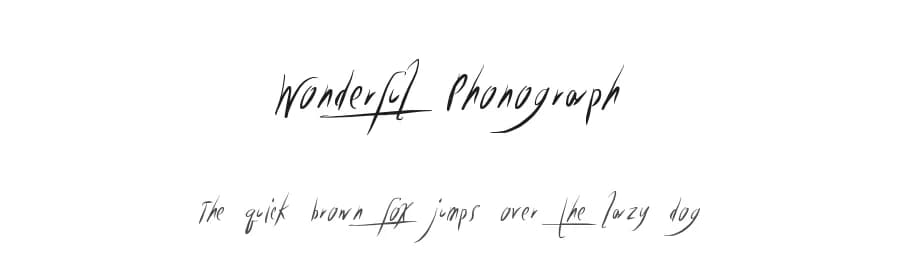 Wonderful Phonograph
The quick brown fox jumps over the lazy dog